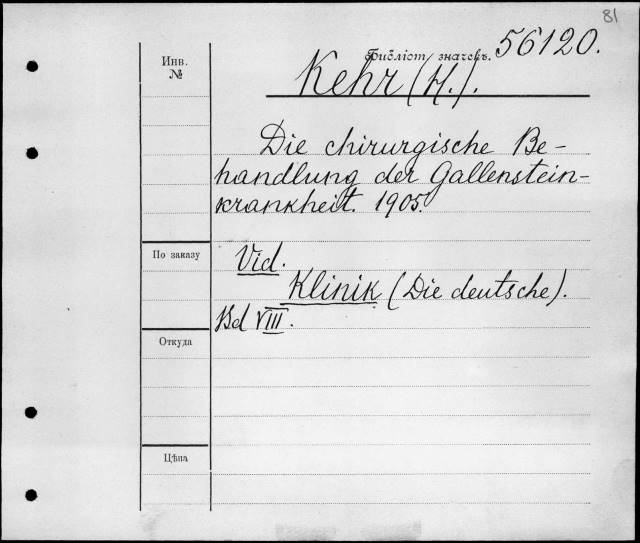 81
Инв.
№
Библіот. значекъ. 56120.
Kehr (H.).
Die chirurgische Be-
handlung der Gallenstein-
krankheit. 1905.
По заказу
Vid.
Klinik (Die deutsche).
Bd VIII.
Откуда
Цѣна